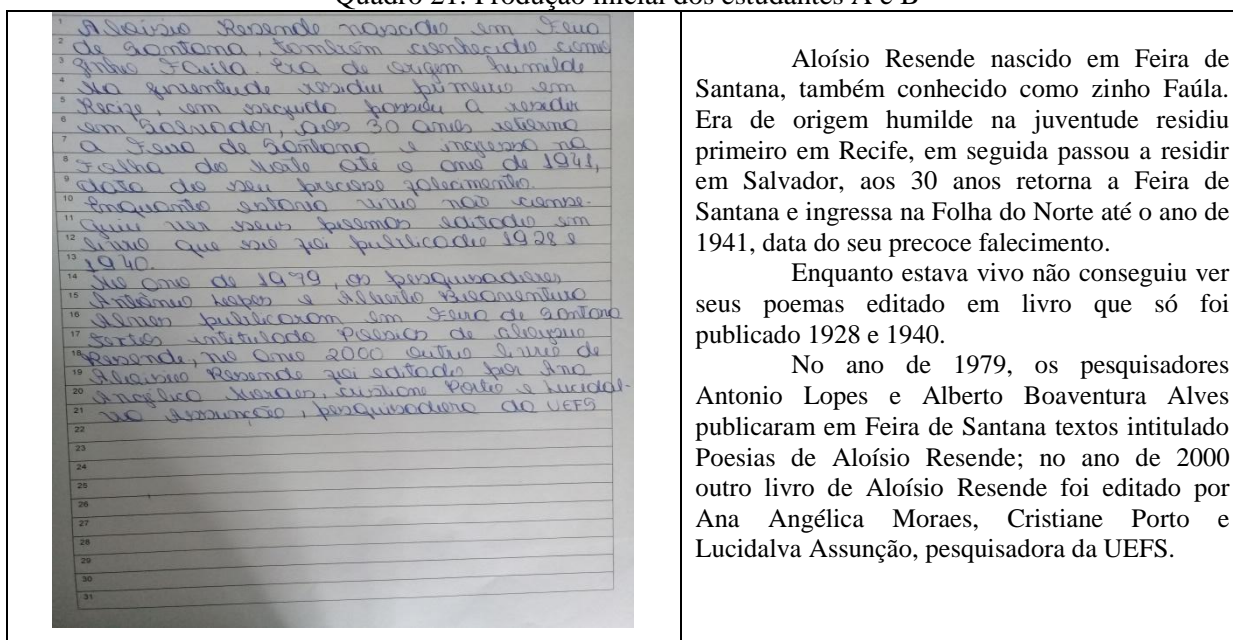 Quadro 21: Produção inicial dos estudantes A e B
1 Aloísio Resende nascido em Feira
2 de Santana, também conhecido como
3 zinho Faúla. Era de origem humilde
4 na juventude residiu primeiro em
5 Recife, em seguida passou a residir
6 em Salvador, aos 30 anos retorna
7 a Feira de Santana e ingressa na
8 Folha do Norte até o ano de 1941,
9 data do seu precoce falecimento.
10 Enquanto estava vivo não conse-
11 guiu ver seus poemas editado em
12 livro que só foi publicado 1928 e
13 1940.
14 No ano de 1979, os pesquisadores
15 Antônio Lopes e Alberto Boaventura
16 Alves publicaram em Feira de Santana
17 textos intitulado Poesias de Aloysio
18 Resende, no ano 2000 outro livro de
19 Aloísio Resende foi editado por Ana
20 Angélica Moraes, cristiane Porto e Lucidal-
21 va Assunção, pesquisadora da UEFS
22
23
24
25
26
27
28
29
30
31
Aloísio Resende nascido em Feira de
Santana, também conhecido como zinho Faúla.
Era de origem humilde na juventude residiu
primeiro em Recife, em seguida passou a residir
em Salvador, aos 30 anos retorna a Feira de
Santana e ingressa na Folha do Norte até o ano de
1941, data do seu precoce falecimento.
Enquanto estava vivo não conseguiu ver
seus poemas editado em livro que só foi
publicado 1928 e 1940.
No ano de 1979, os pesquisadores
Antonio Lopes e Alberto Boaventura Alves
publicaram em Feira de Santana textos intitulado
Poesias de Aloísio Resende; no ano de 2000
outro livro de Aloísio Resende foi editado por
Ana Angélica Moraes, Cristiane Porto e
Lucidalva Assunção, pesquisadora da UEFS.